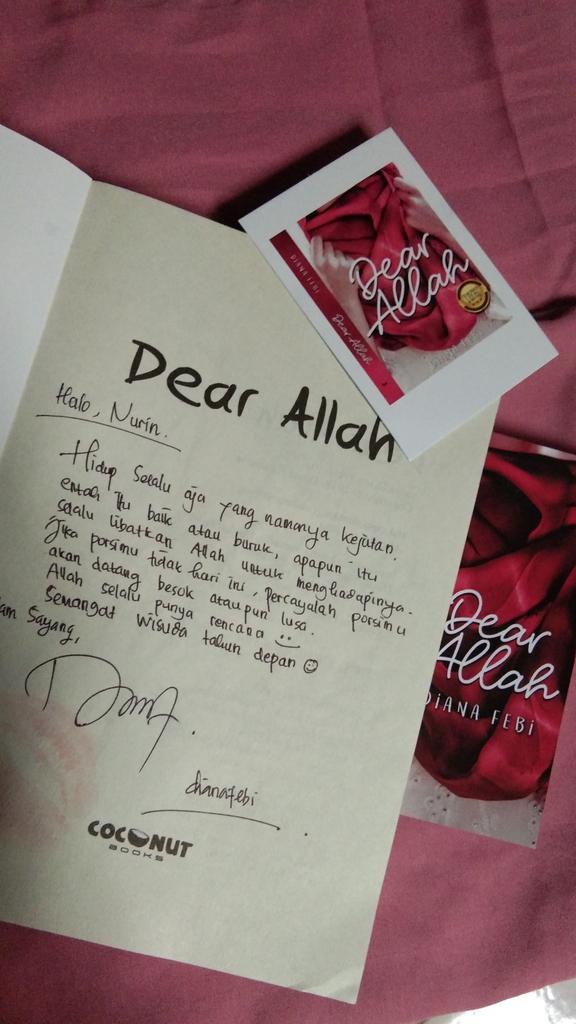 DIANA FEBI
Dear Allah
Dear
Allah
Dear Allah
Halo, Nurin.
Hidup selalu aja yang namanya kejutan.
entah itu baik atau buruk, apapun itu
selalu libatkan Allah untuk menghadapinya.
Jika porsimu tidak hari ini, percayalah porsimu
akan datang besok ataupun lusa.
Allah selalu punya rencana
Semangat wisuda tahun depan ☺
Sayang,
dianafebi
COCONUT
BOOKS
Dear
Allah
DIANA FEBI